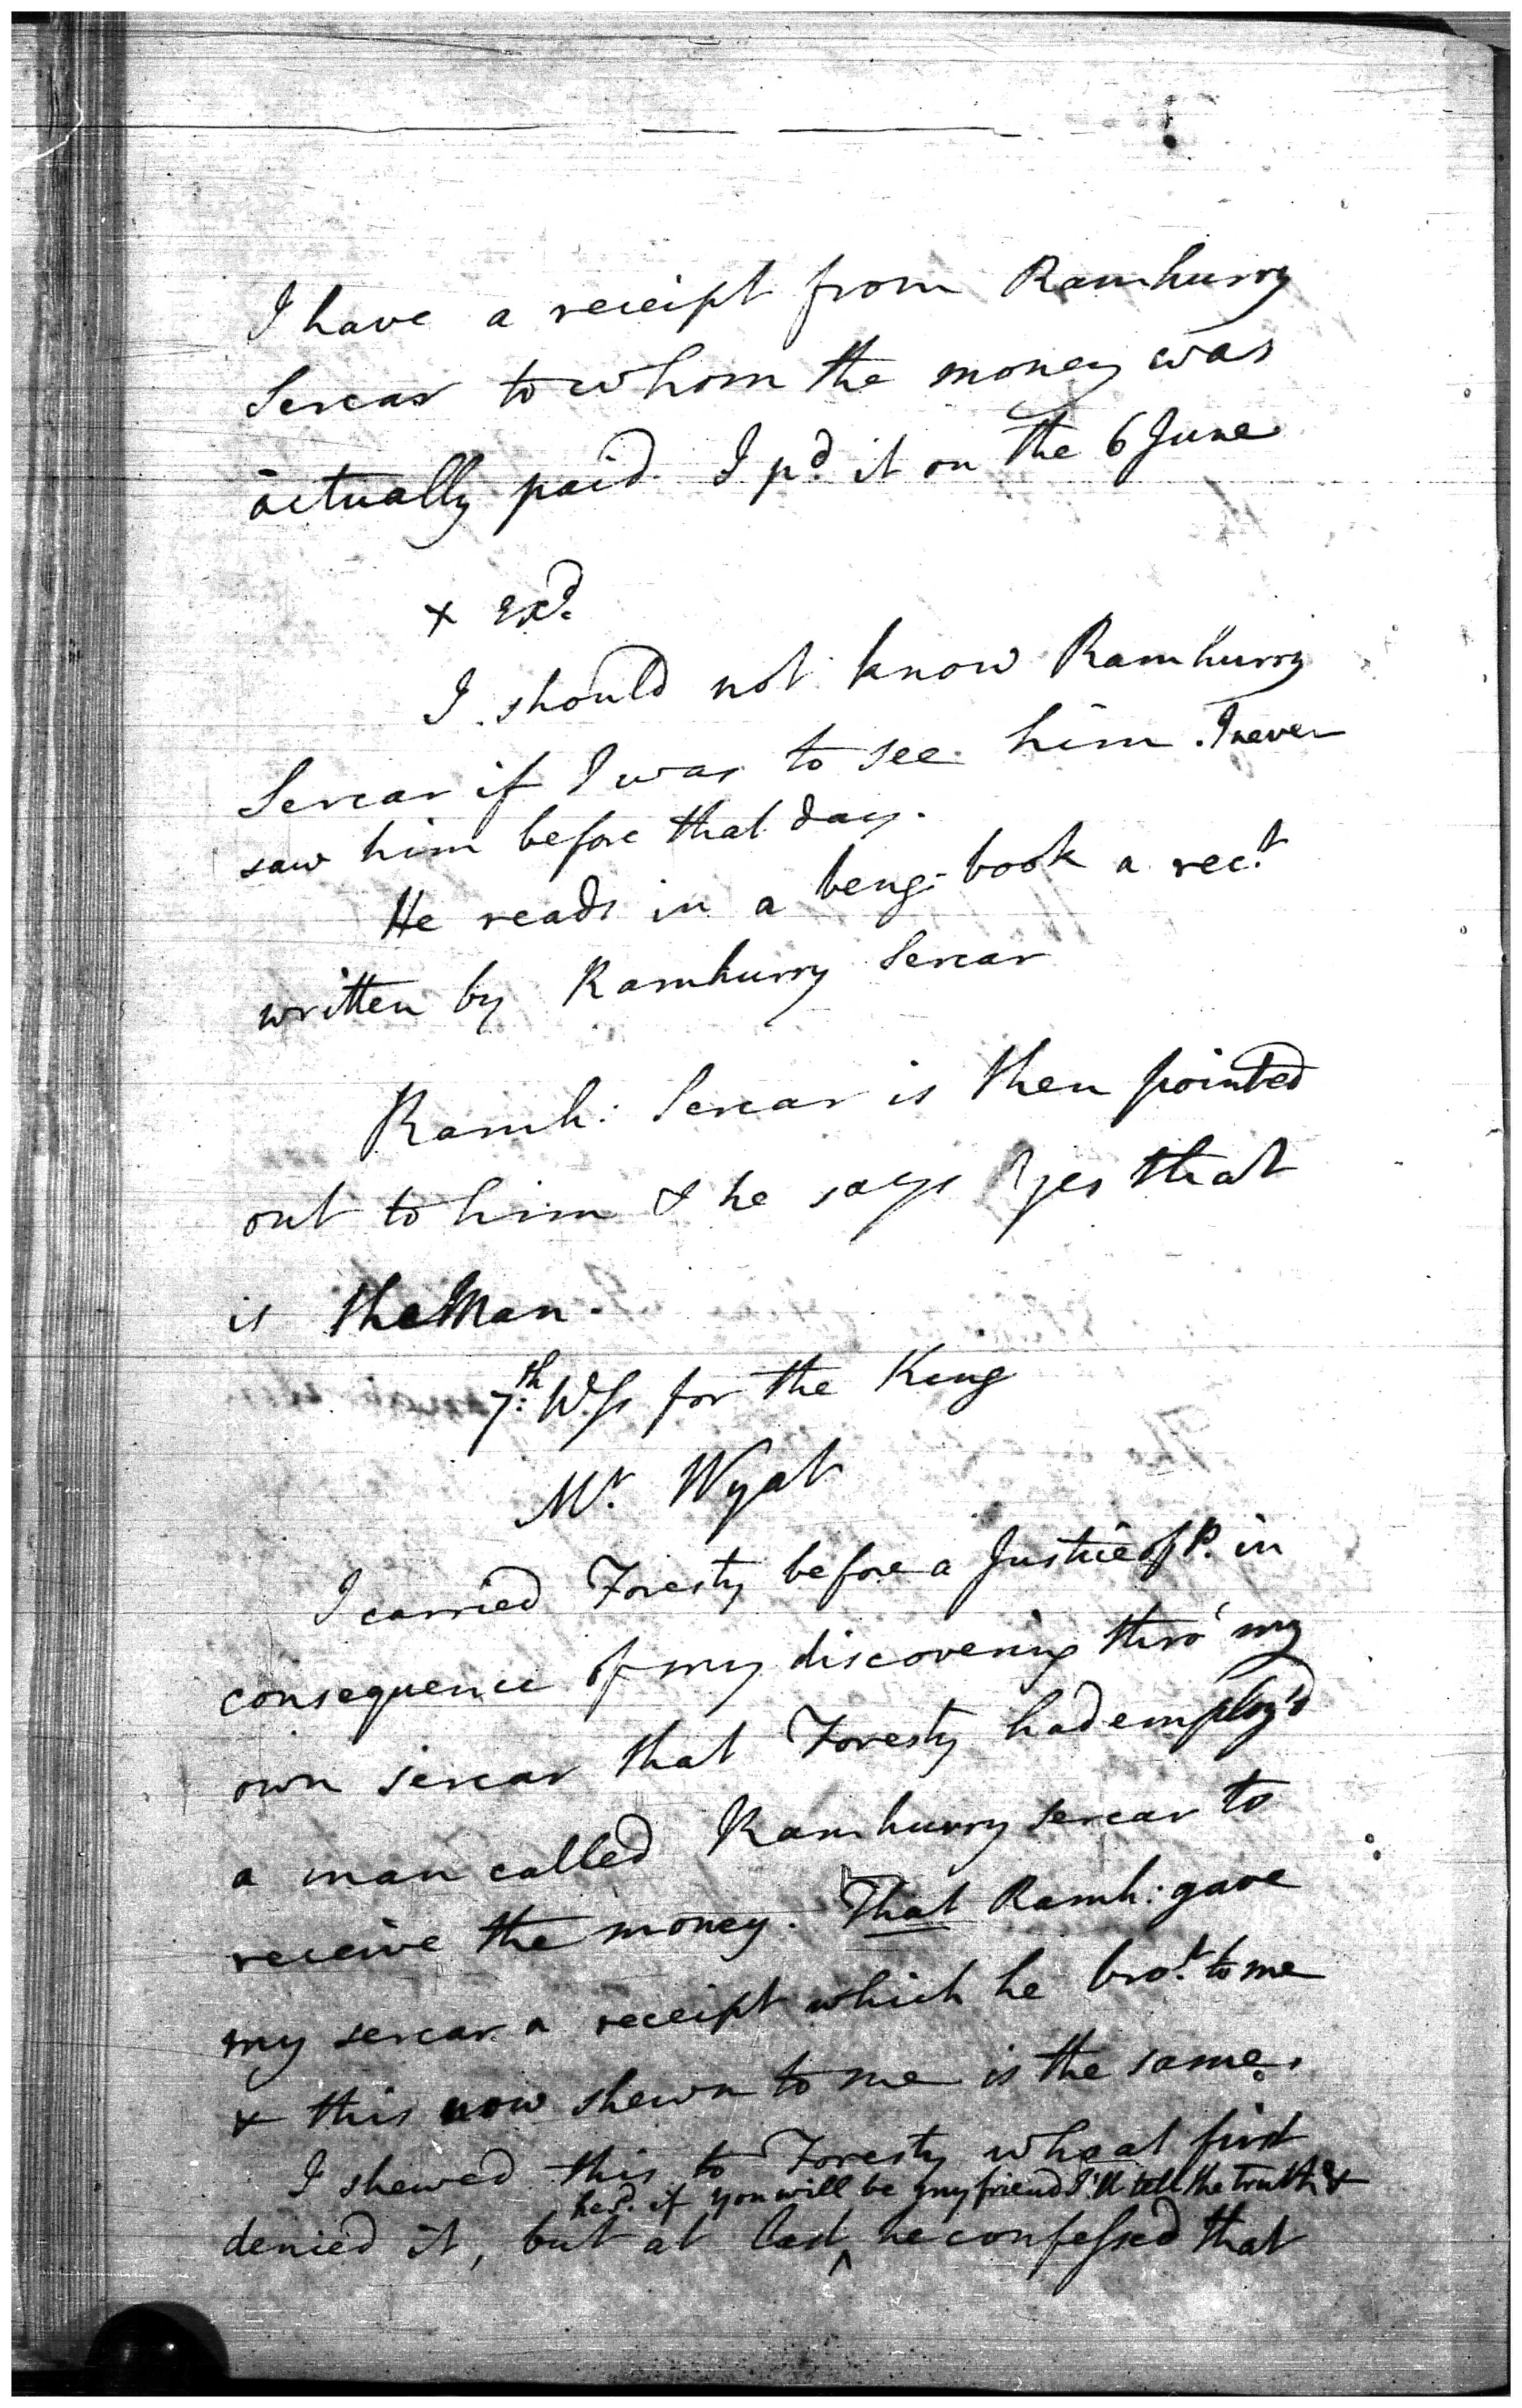 I have a receipt from Ramhurry
Sercar to whom the money was
actually paid. I pd. it on the 6 June
x Exd.
I should not know Ramhurry
Sercar if I was to see him. I never
saw him before that day.
He reads in a beng: book a rect.
written by Ramhurry Sercar
Ramh: Sercar is then pointed
out to him & he says yes that
is the Man.
7th: Wss for the King
Mr. Wyat
I carried Foresty before a Justice of P. in
consequence of my discovering thro' my
own sercar that Foresty had employ'd
a man called Ramhurry sercar to
receive the money. That Ramh: gave
my sercar a receipt which he brot. to me
& this now shewn to me is the same.
I shewed this to Foresty who at first
he sd. if you will be my friend I'll tell the truth &
denied it, but at last ^ he confessed that